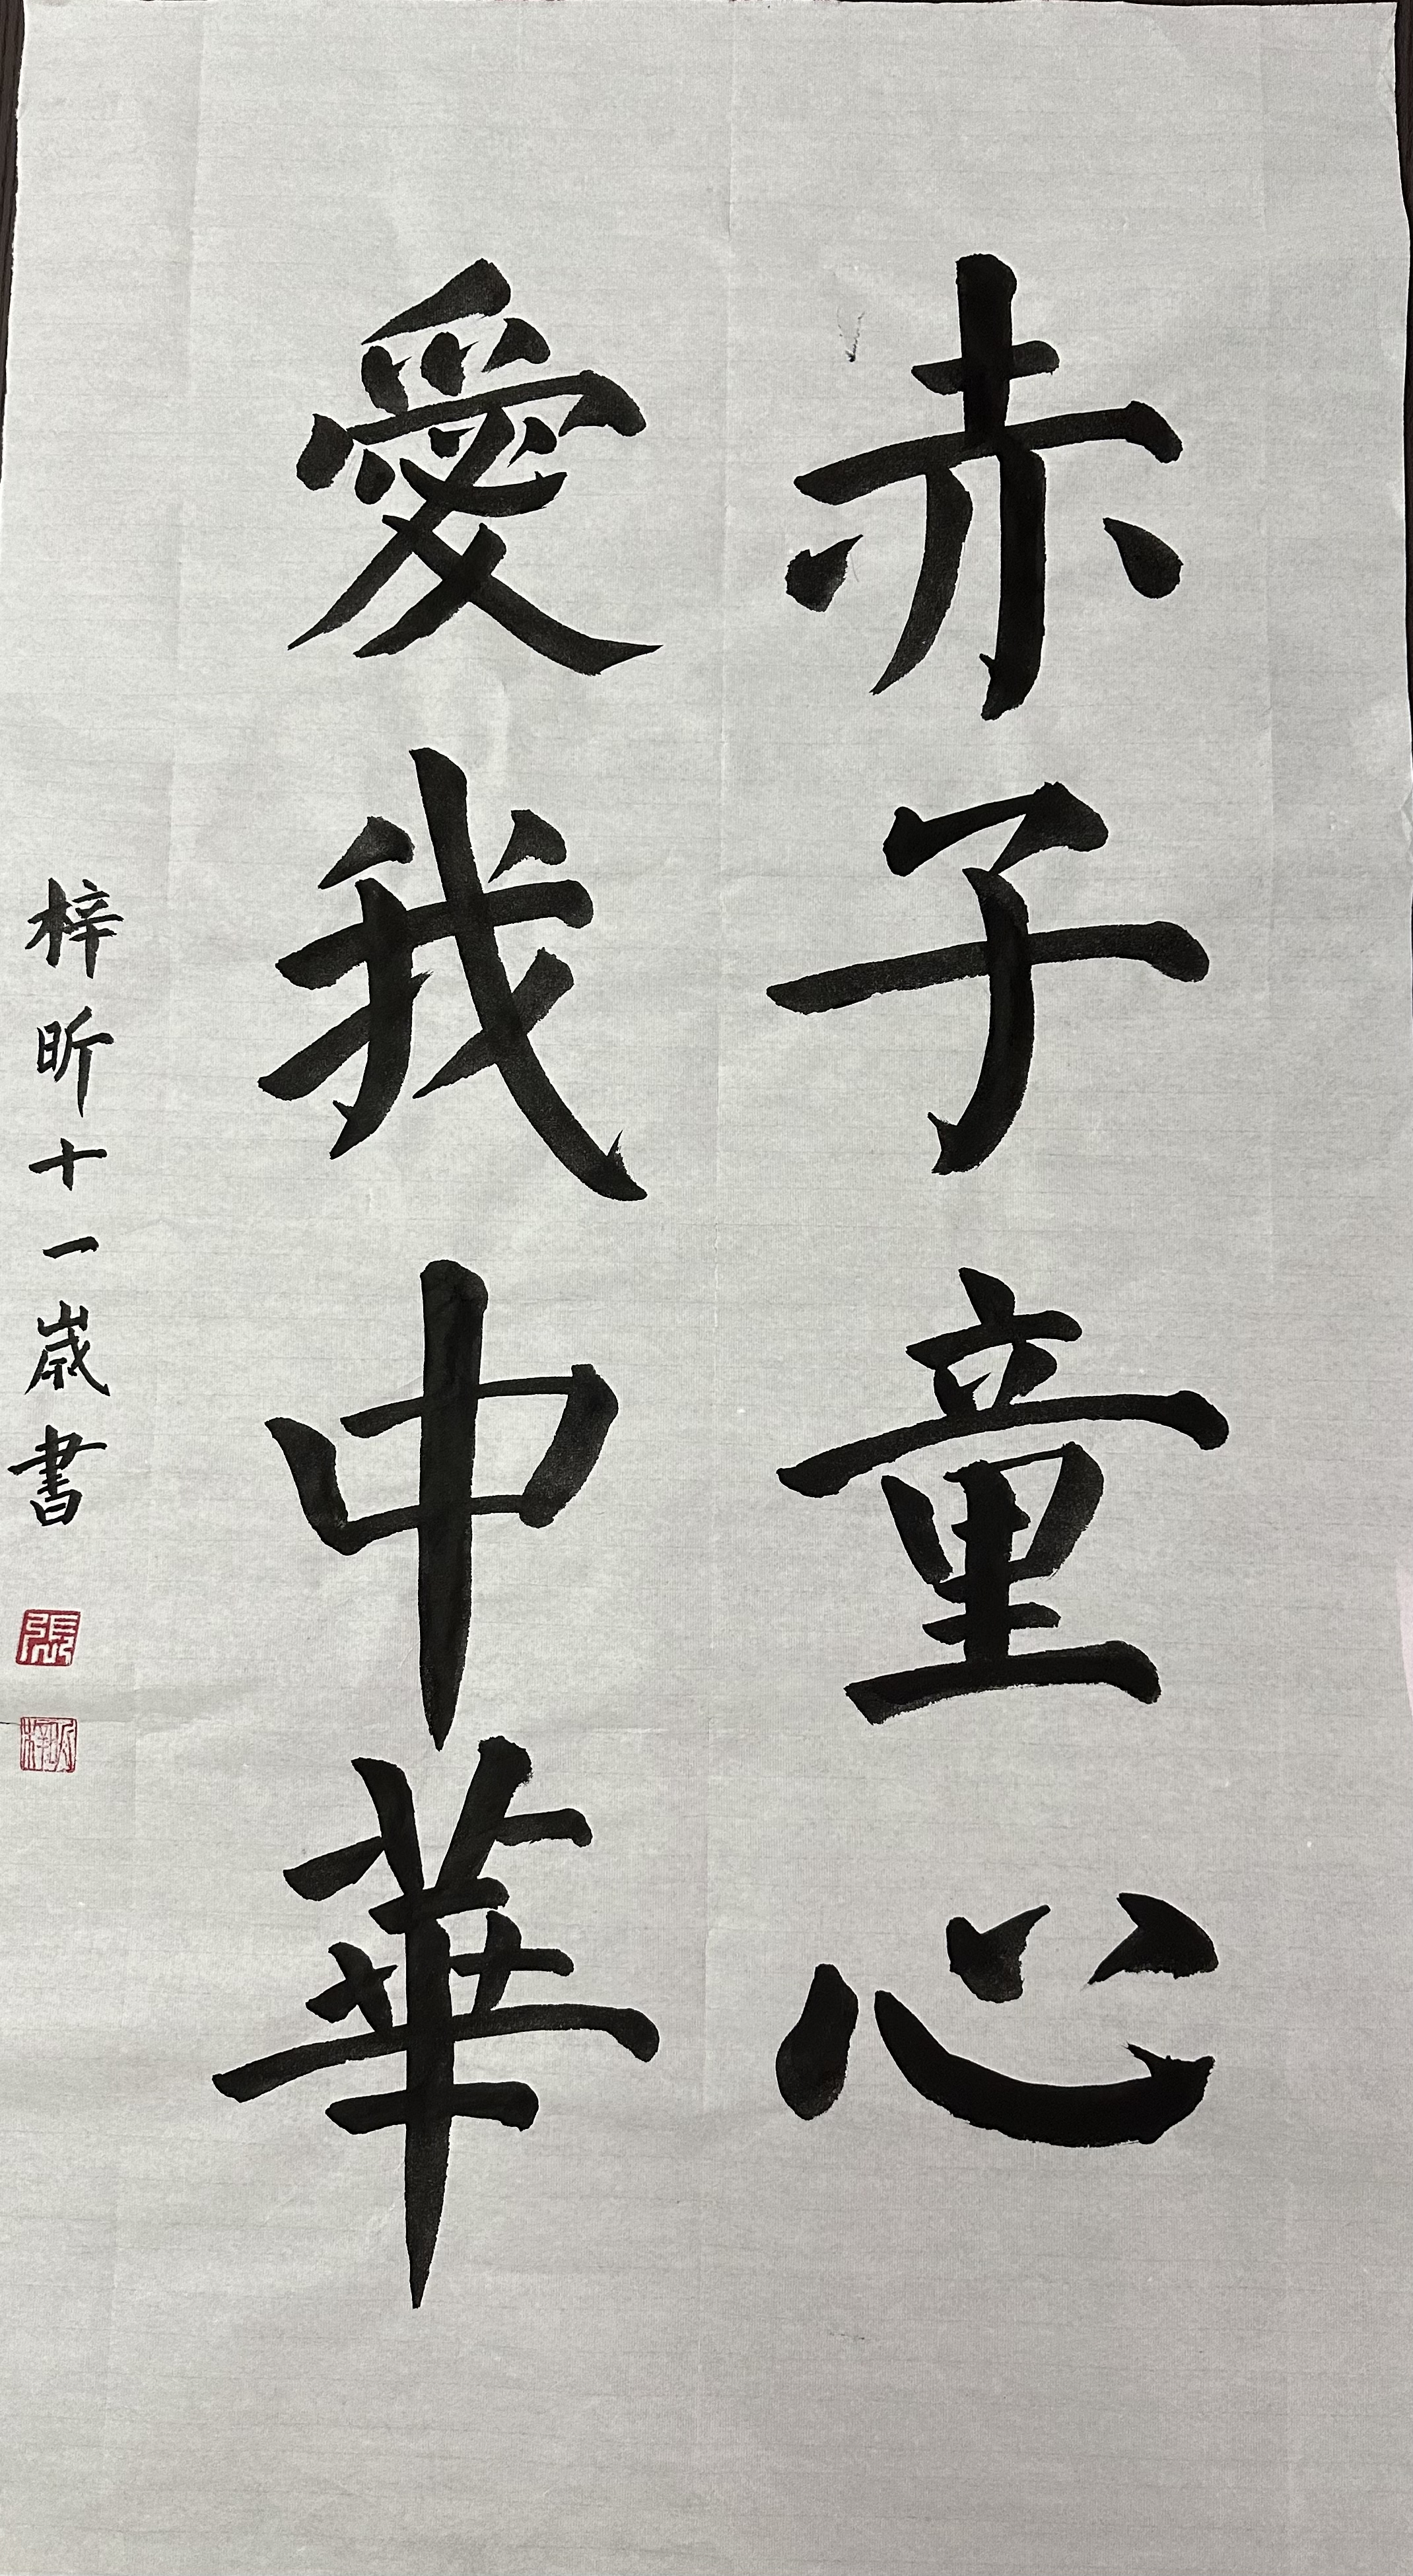 赤子童心
愛我中華
梓昕十一歲書
張
梓昕